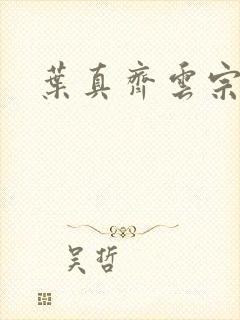 葉真齊雲宗
吳哲